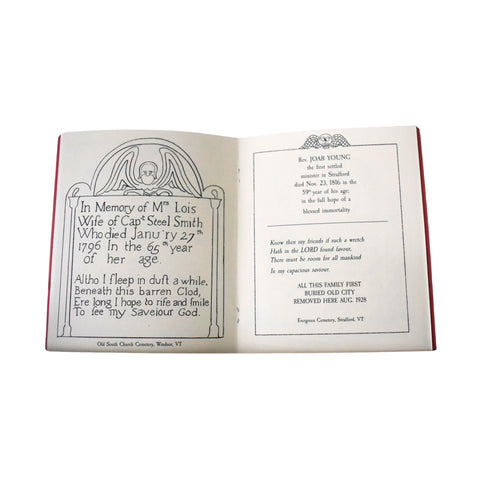 In Memory of Mrs Lois
Wife of Capt Steel Smith
Who died Janury 27th
1796 In the 65th year
of her age.
Altho I ſleep in duſt a while,
Beneath this barren Clod,
Ere long I hope to riſe and ſmile
To ſee my Saveiour God.
Old South Church Cemetery, Windsor, VT
Rev. JOAB YOUNG
the first settled
minister in Strafford
died Nov. 23, 1816 in the
59th year of his age;
in the full hope of a
blessed immortality
Know then my friends if such a wretch
Hath in the LORD found favour,
There must be room for all mankind
In my capacious saviour.
ALL THIS FAMILY FIRST
BURIED OLD CITY
REMOVED HERE AUG. 1928
Evergreen Cemetery, Strafford, VT